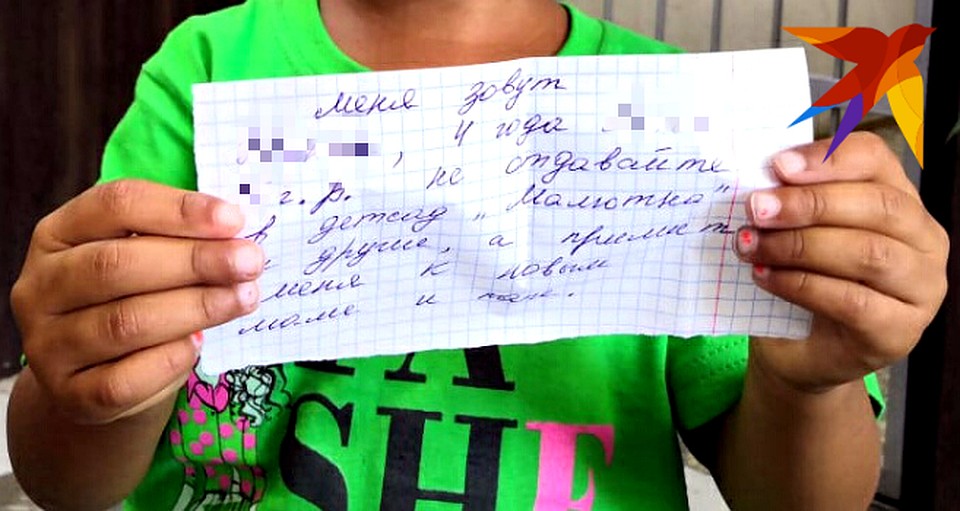 меня зовут
, 4 года
г.р. не отдавайте
в детсад "Малютка"
и другие, а примите
меня к новым
маме и папе.
SHE